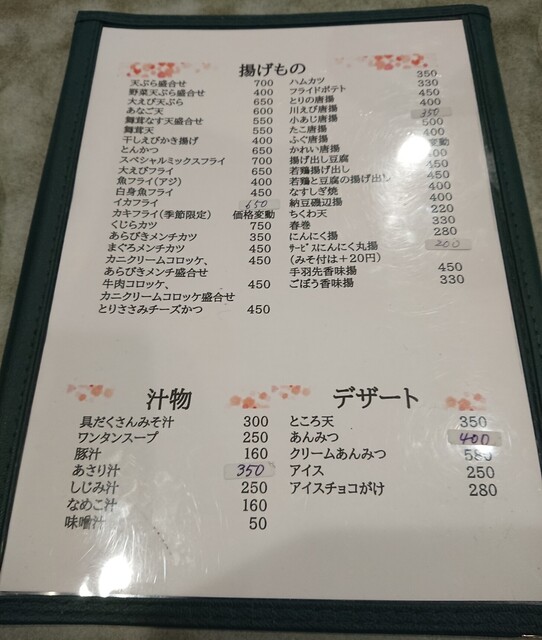 揚げもの
天ぷら盛合せ 700
野菜天ぷら盛合せ 400
大えび天ぷら 650
あなご天 600
舞茸なす天盛合せ 650
舞茸天 550
干しえびかき揚げ 400
とんかつ 650
スペシャルミックスフライ 700
大えびフライ 650
魚フライ(アジ) 400
白身魚フライ 450
イカフライ 650
カキフライ(季節限定) 価格変動
くじらカツ 750
あらびきメンチカツ 350
まぐろメンチカツ 450
カニクリームコロッケ、 450
あらびきメンチ盛合せ
牛肉コロッケ、 450
カニクリームコロッケ盛合せ
とりささみチーズかつ 450
ハムカツ 350
フライドポテト 330
とりの唐揚 450
川えび唐揚 400
小あじ唐揚 350
たこ唐揚 500
ふぐ唐揚 400
かれい唐揚 変動
揚げ出し豆腐 400
若鶏揚げ出し 450
若鶏と豆腐の揚げ出し 450
なすしぎ焼 400
納豆磯辺揚 400
ちくわ天 220
春巻 330
にんにく揚 280
サービスにんにく丸揚 200
(みそ付は+20円)
手羽先香味揚 450
ごぼう香味揚 330
汁物
具だくさんみそ汁 300
ワンタンスープ 250
豚汁 160
あさり汁 350
しじみ汁 250
なめこ汁 160
味噌汁 50
デザート
ところ天 350
あんみつ 400
クリームあんみつ 580
アイス 250
アイスチョコがけ 280